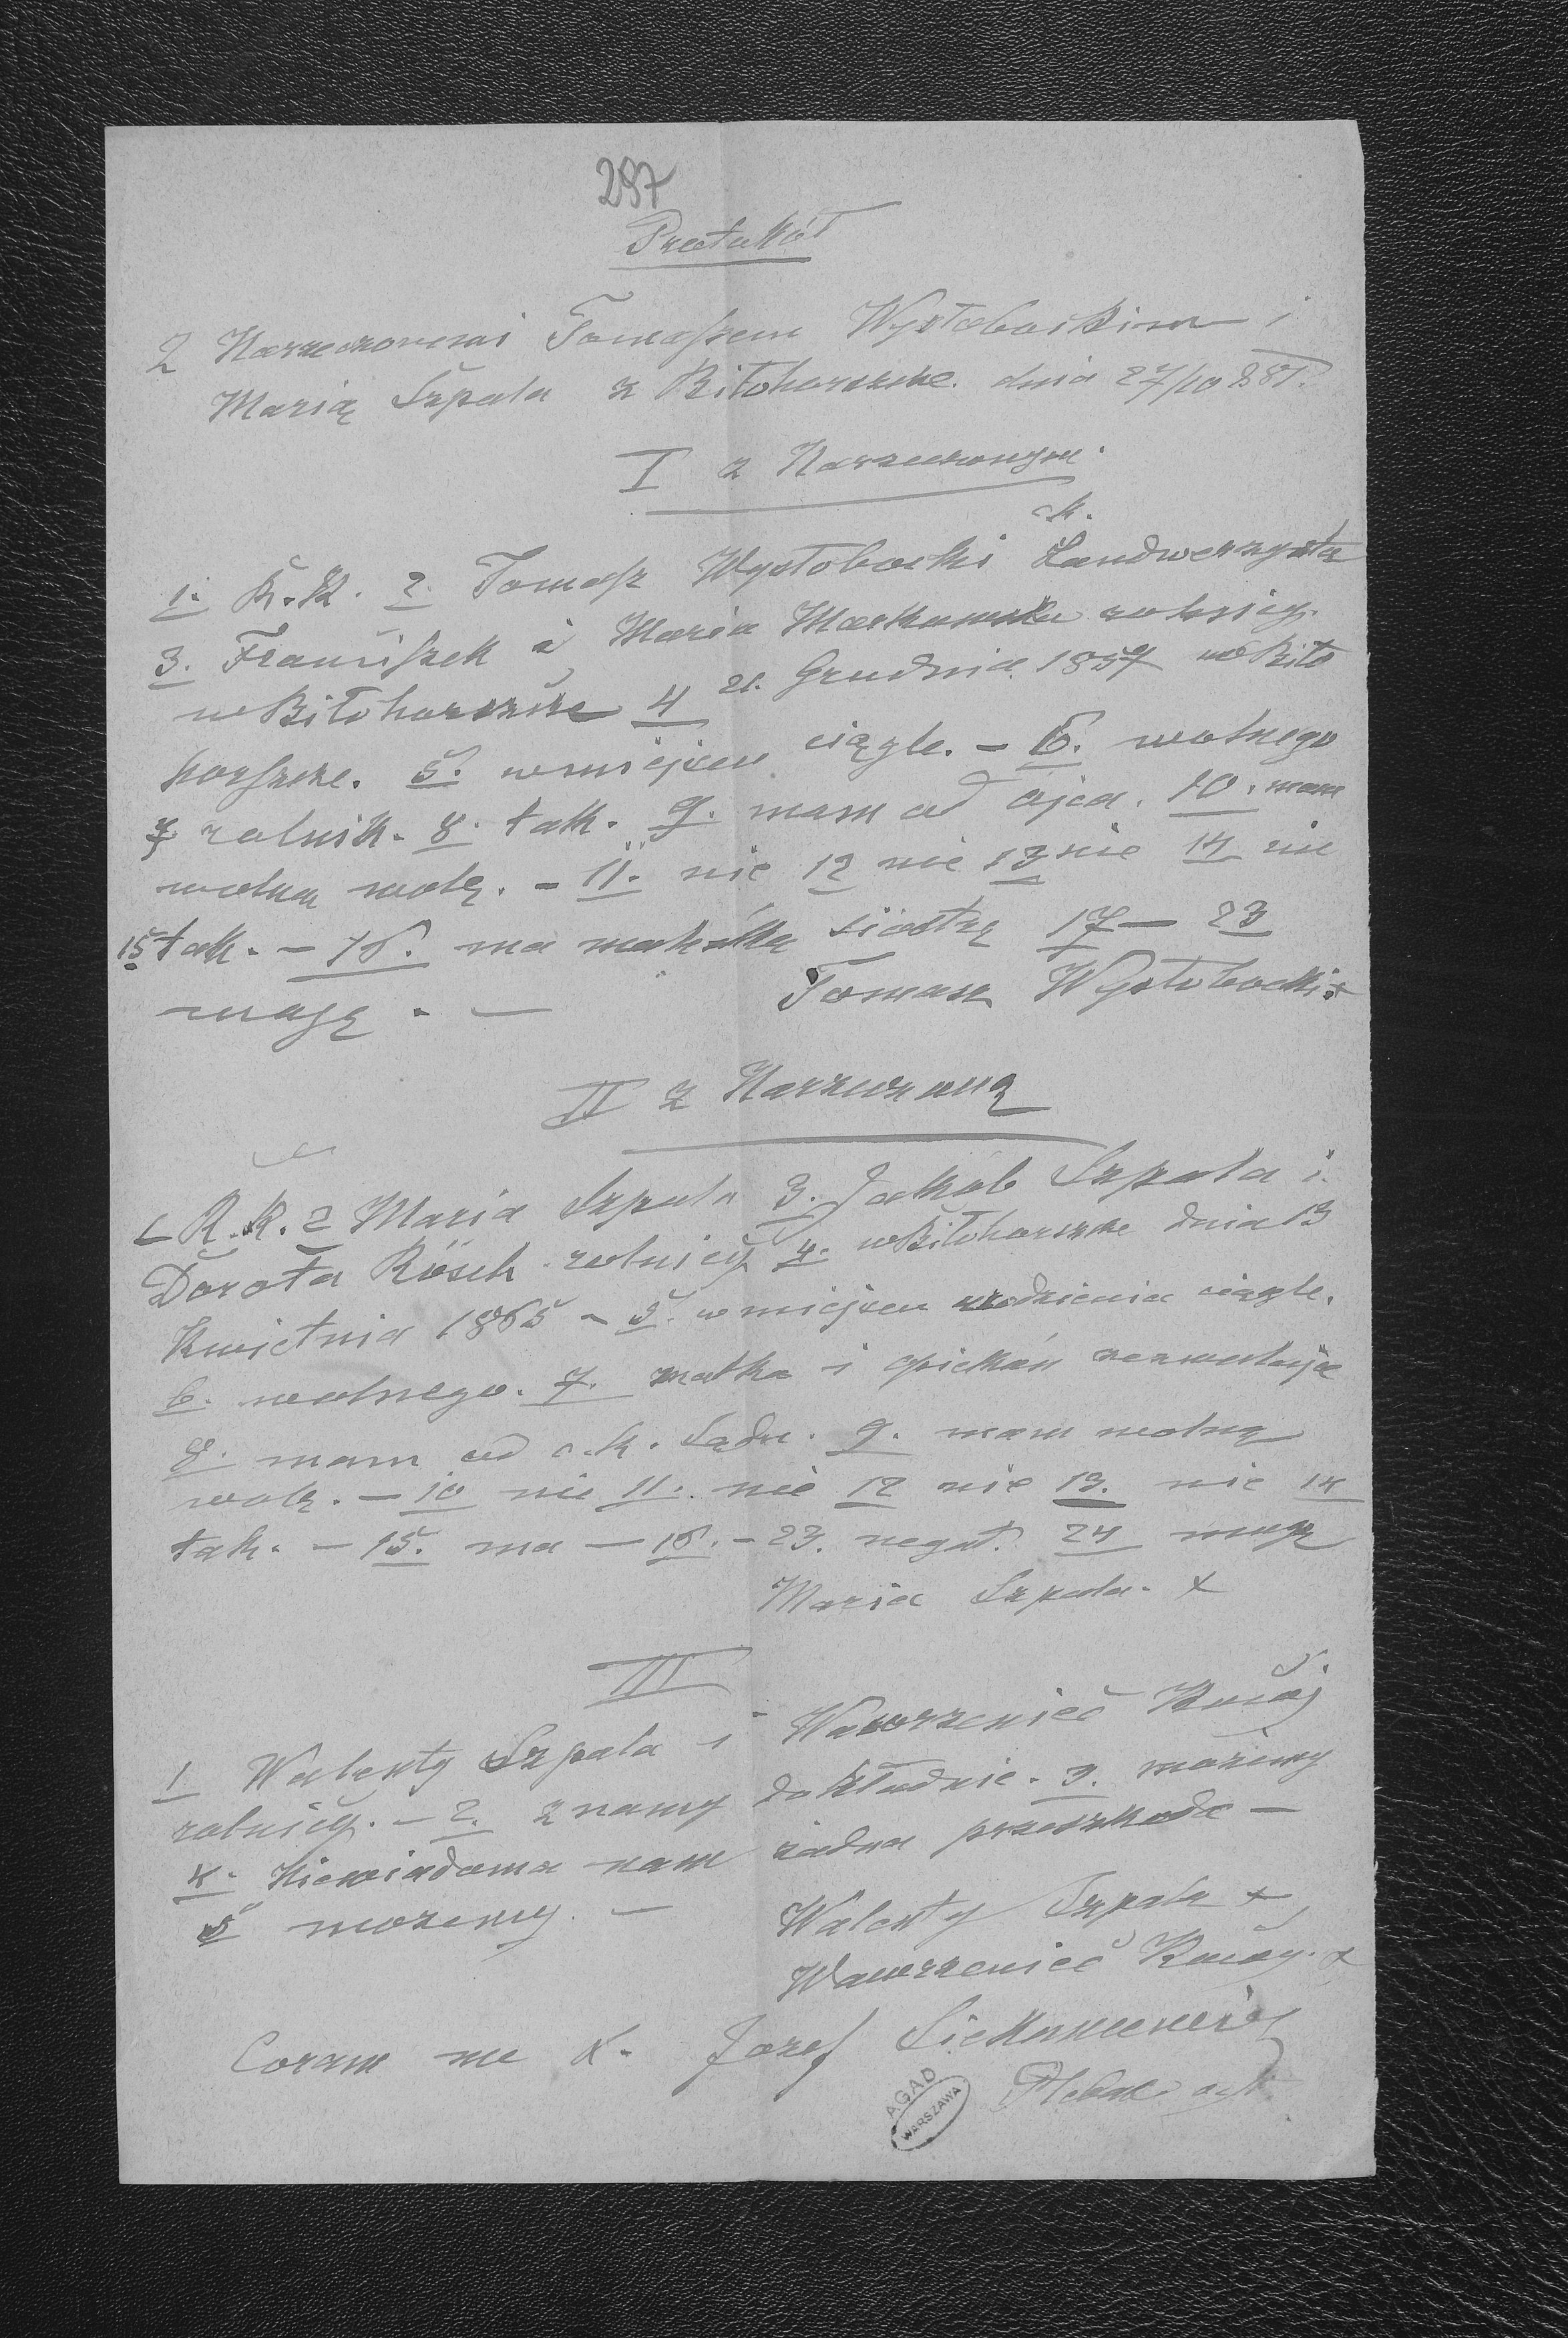 297
Protokół
Z Narzeczonemi Tomaszem Wysłobockim i
Marią Szpala z Biłohorszcze. dnia 27/10 881.
I z Narzeczonym.
ck.
1. R.K. 2. Tomasz Wysłobocki Landwerzysta
3. Franciszek i Maria rolnicy.
w Biłohorszcze 4 21. Grudnia 1857 w Biło
horszcze. 5. w miejscu ciągle. – 6. wolnego
7 rolnik. 8. tak. 9. mam od ojca. 10. mam
wolną wolę. – 11. nie 12 nie 13 nie 14 nie
15 tak. – 16. ma siostrę 17 – 23
– Tomasz Wysłobocki +
II z Narzeczoną
1 R.K. 2 Maria Szpala 3. Jakób Szpala i
Dorota Rösch rolnicy 4. w Biłohorszcze dnia 13
Kwietnia 1865 – 5. w miejscu urodzienia ciągle.
6. wolnego. 7. matka i opiekun
8. mam od c.k. Sądu. 9. mam wolną
wolę. – 10 nie 11. nie 12 nie 13. nie 14
tak. – 15. ma – 16. – 23. negat. 24
Maria Szpala. +
III
1 Walenty Szpala i Wawrzeniec
rolnicy. – 2. znamy dokładnie. 3. możemy
4. Niewiadoma nam żadna przeszkoda –
5 możemy. –
Walenty Szpala +
Wawrzeniec +
Coram me X. Jozef
AGAD
WARSZAWA